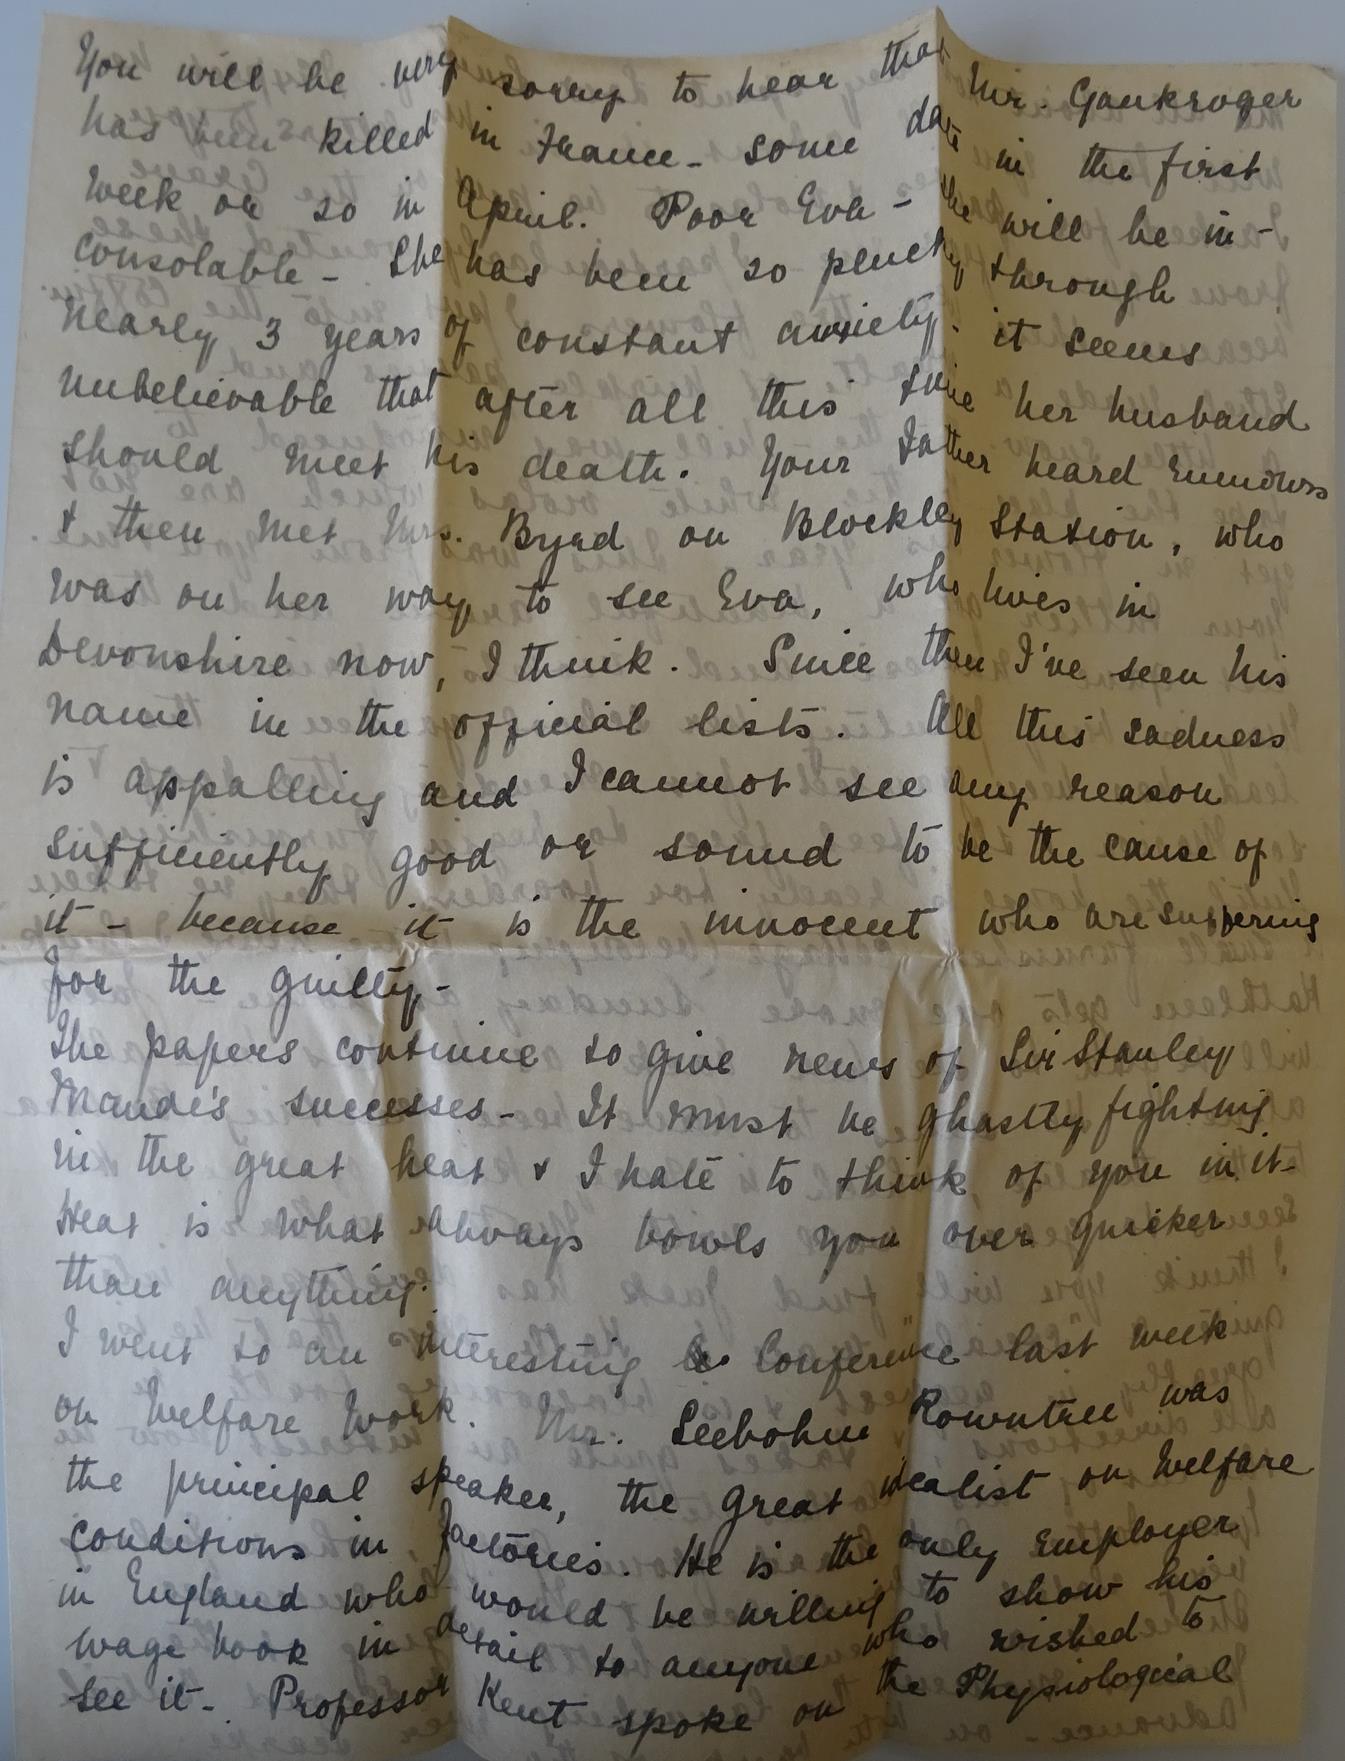 You will be very sorry to hear that Mr. Gaukroger
has been killed in France - some date in the first
week or so in April. Poor Eva - she will be in-
consolable - She has been so plucky through
nearly 3 years of constant anxiety - it seems
unbelievable that after all this time her husband
should meet his death. Your Father heard rumours
& then met Mrs. Byrd on Blockley Station, who
was on her way to see Eva, who lives in
Devonshire now, I think. Since then I've seen his
name in the official lists. All this sadness
is appalling and I cannot see any reason
sufficiently good or sound to be the cause of
it - because it is the innocent who are suffering
for the guilty -
The papers continue to give news of Sir Stanley
Maude's successes - It must be ghastly fighting
in the great heat & I hate to think of you in it -
Heat is what always bowls you over quicker
than anything.
I went to an interesting Conference last week
on Welfare Work. Mr. Seebohm Rowntree was
the principal speaker, the great idealist on Welfare
conditions in factories. He is the only employer
in England who would be willing to show his
wage book in detail to anyone who wished to
see it - Professor Kent spoke on the Physiological